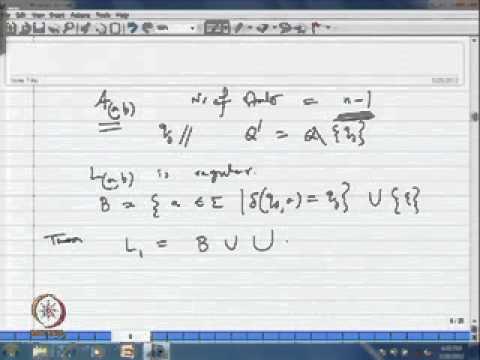 A(a,b) No of State = n-1
q0 // Q' = Q \ {q0}
L(a,b) is regular.
B = { a ∈ Σ | δ(q0, a) = q0 } ∪ {ε}
Then L1 = B ∪ ∪